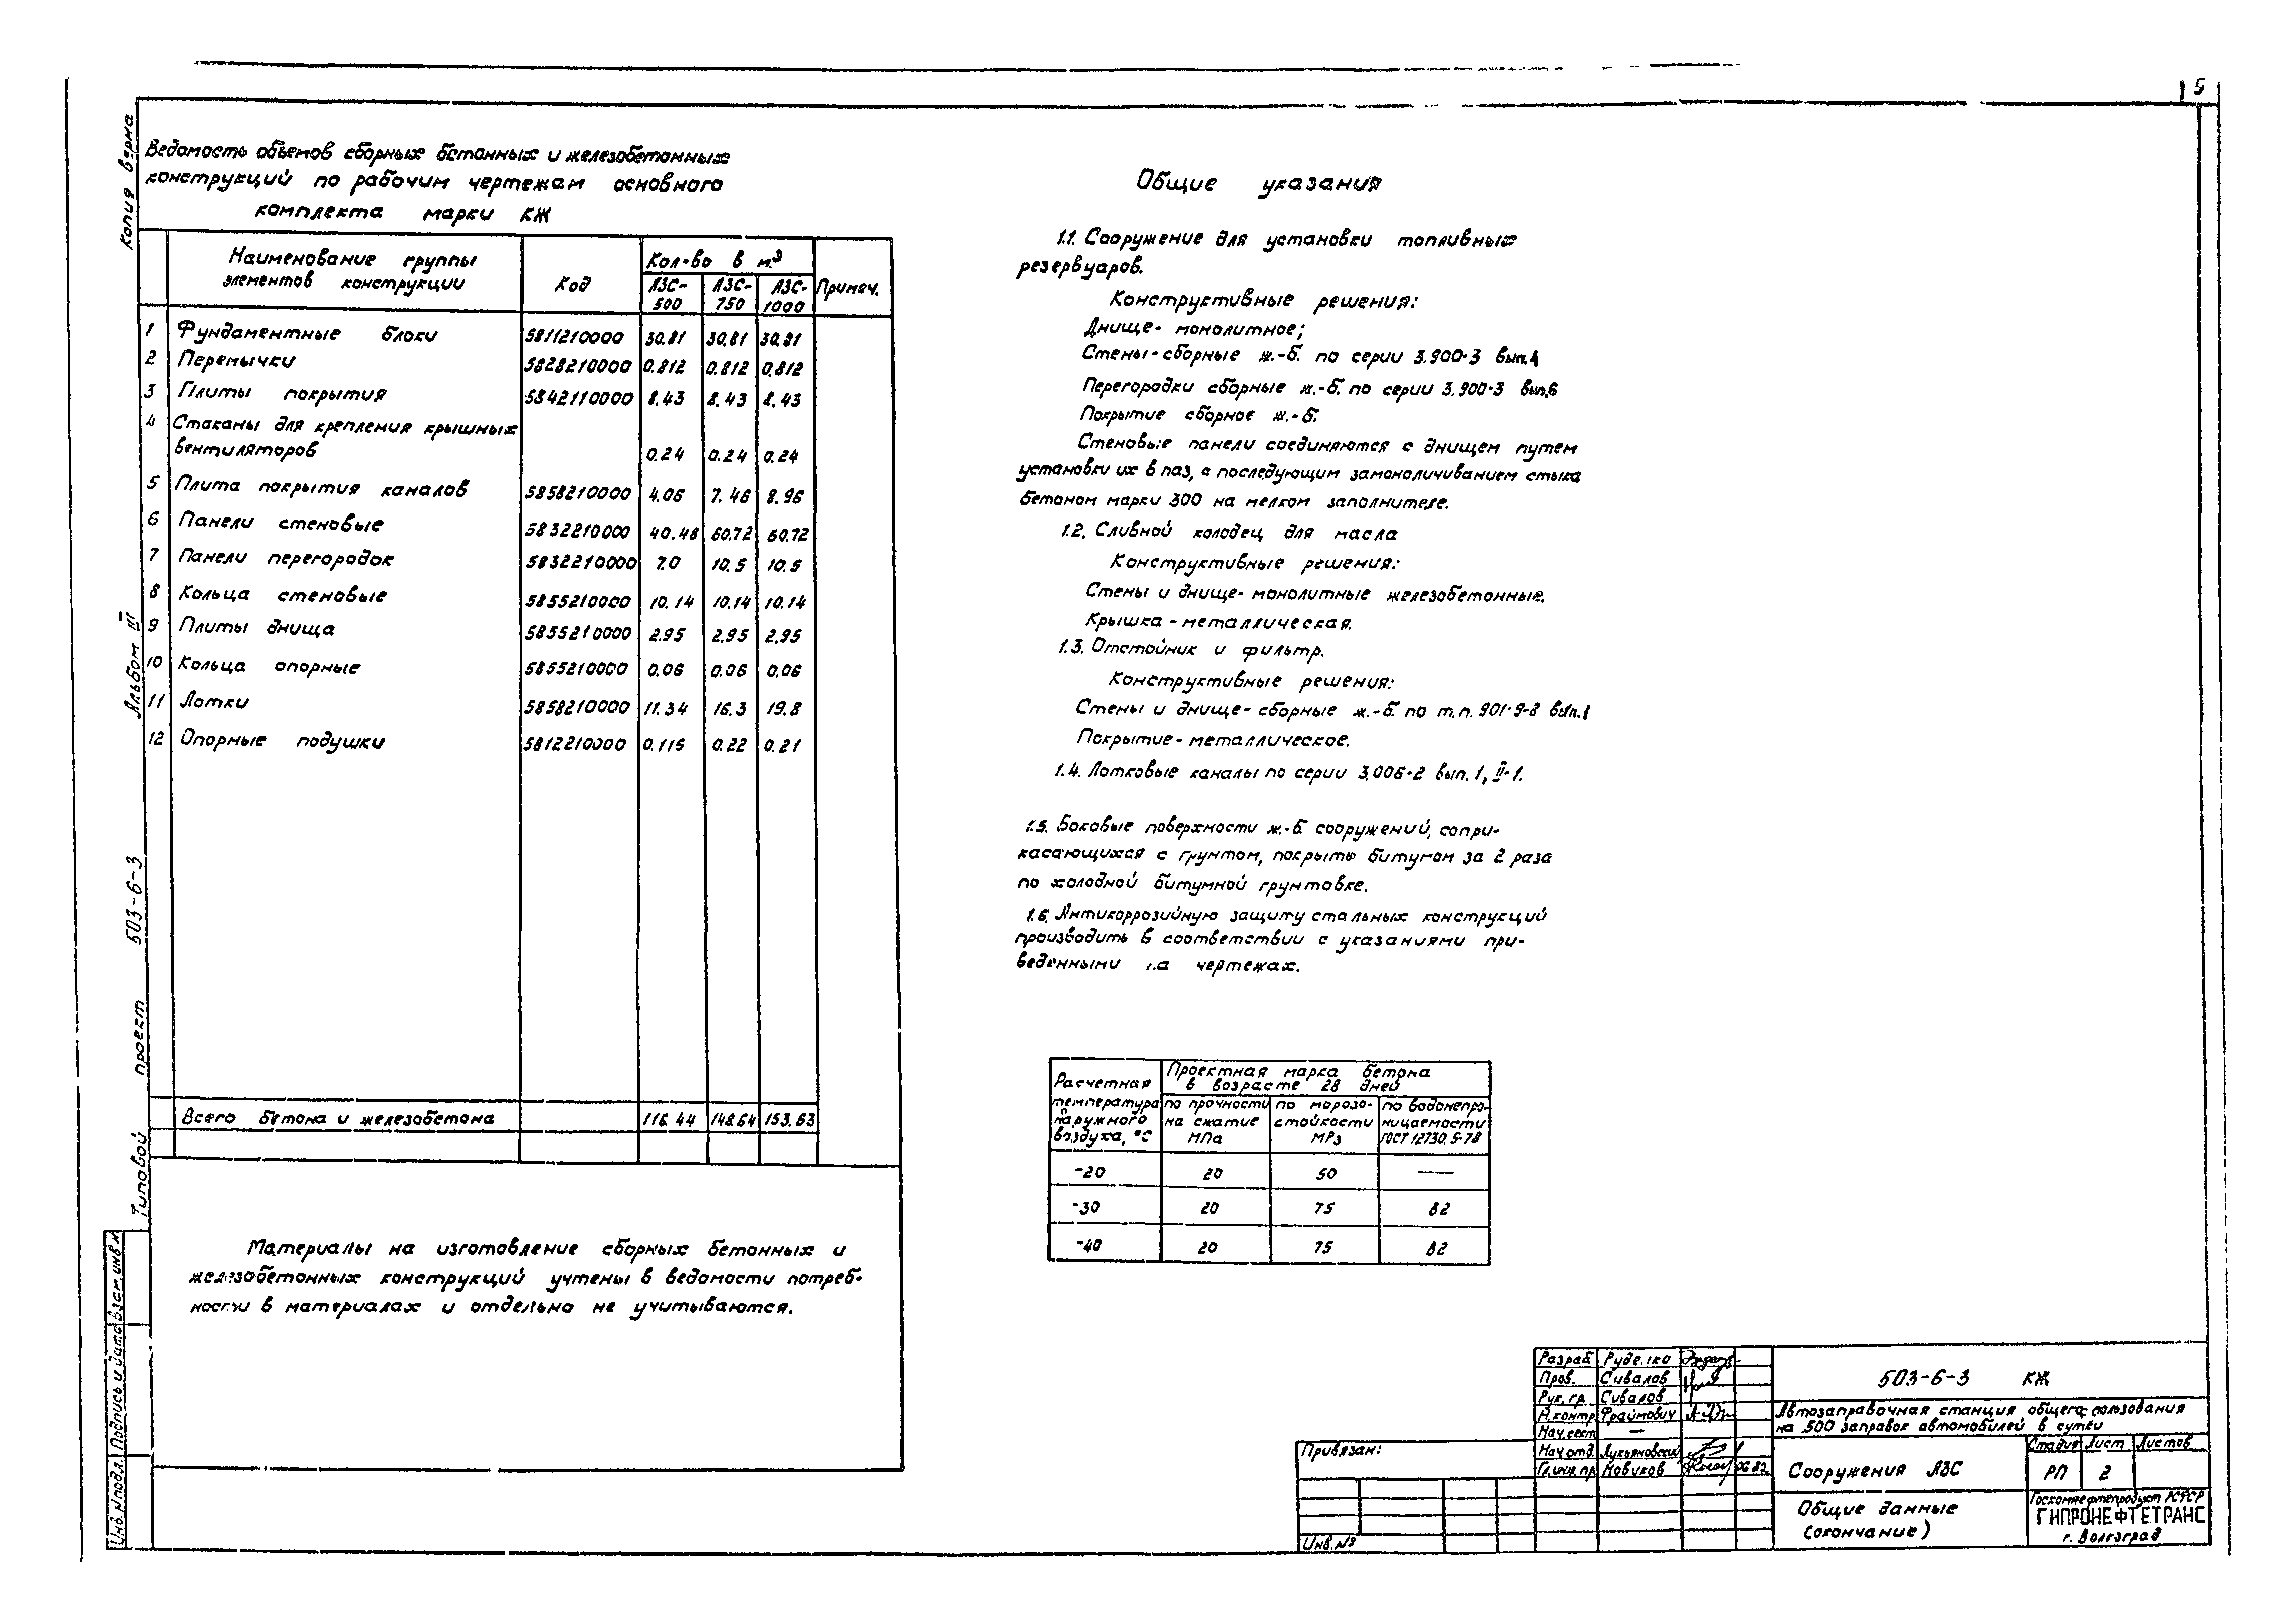 5
Копия верна
Ведомость объемов сборных бетонных и железобетонных
конструкций по рабочим чертежам основного
комплекта марки КЖ
Наименование группы элементов конструкции Код Кол-во в м³ Примеч.
АЗС-500 АЗС-750 АЗС-1000
1 Фундаментные блоки 5811210000 30.81 30.81 30.81
2 Перемычки 5828210000 0.812 0.812 0.812
3 Плиты покрытия 5842110000 8.43 8.43 8.43
4 Стаканы для крепления крышных
вентиляторов 0.24 0.24 0.24
5 Плита покрытия каналов 5858210000 4.06 7.46 8.96
6 Панели стеновые 5832210000 40.48 60.72 60.72
7 Панели перегородок 5832210000 7.0 10.5 10.5
8 Кольца стеновые 5855210000 10.14 10.14 10.14
9 Плиты днища 5855210000 2.95 2.95 2.95
10 Кольца опорные 5855210000 0.06 0.06 0.06
11 Лотки 5858210000 11.34 16.3 19.8
12 Опорные подушки 5812210000 0.115 0.22 0.21
Всего бетона и железобетона 116.44 148.64 153.63
Материалы на изготовление сборных бетонных и
железобетонных конструкций учтены в ведомости потреб-
ности в материалах и отдельно не учитываются.
Альбом III
Типовой проект 503-6-3
Взам. инв. №
Подпись и дата
Инв. № подл.
Общие указания
1.1. Сооружение для установки топливных
резервуаров.
Конструктивные решения:
Днище- монолитное;
Стены-сборные ж.-б. по серии 3.900-3 вып.4
Перегородки сборные ж.-б. по серии 3.900-3 вып.6
Покрытие сборное ж.-б.
Стеновые панели соединяются с днищем путем
установки их в паз, с последующим замоноличиванием стыка
бетоном марки 300 на мелком заполнителе.
1.2. Сливной колодец для масла
Конструктивные решения:
Стены и днище- монолитные железобетонные.
Крышка - металлическая.
1.3. Отстойник и фильтр.
Конструктивные решения:
Стены и днище- сборные ж.-б. по т.п. 901-9-8 вып.1
Покрытие- металлическое.
1.4. Лотковые каналы по серии 3.006-2 вып. 1, II-1.
1.5. Боковые поверхности ж.-б сооружений, сопри-
касающихся с грунтом, покрыты битумом за 2 раза
по холодной битумной грунтовке.
1.6. Антикоррозийную защиту стальных конструкций
производить в соответствии с указаниями при-
веденными на чертежах.
Расчетная температура наружного воздуха, °С
Проектная марка бетона
в возрасте 28 дней
по прочности на сжатие МПа
по морозо-стойкости МРз
по водонепро-ницаемости ГОСТ 12730.5-78
-20 20 50 ——
-30 20 75 В2
-40 20 75 В2
Разраб Руденко
Пров. Сивалов
Рук. гр. Сивалов
Н.контр Фраймович
Нач.сект —
Нач.отд. Лукьяновский
Гл.инж.пр Новиков 06.82
503-6-3 КЖ
Автозаправочная станция общего пользования
на 500 заправок автомобилей в сутки
Сооружения АЗС
Стадия Лист Листов
РП 2
Общие данные
(окончание)
Госкомнефтепродукт РСФСР
ГИПРОНЕФТЕТРАНС
г. Волгоград
Привязан:
Инв.№